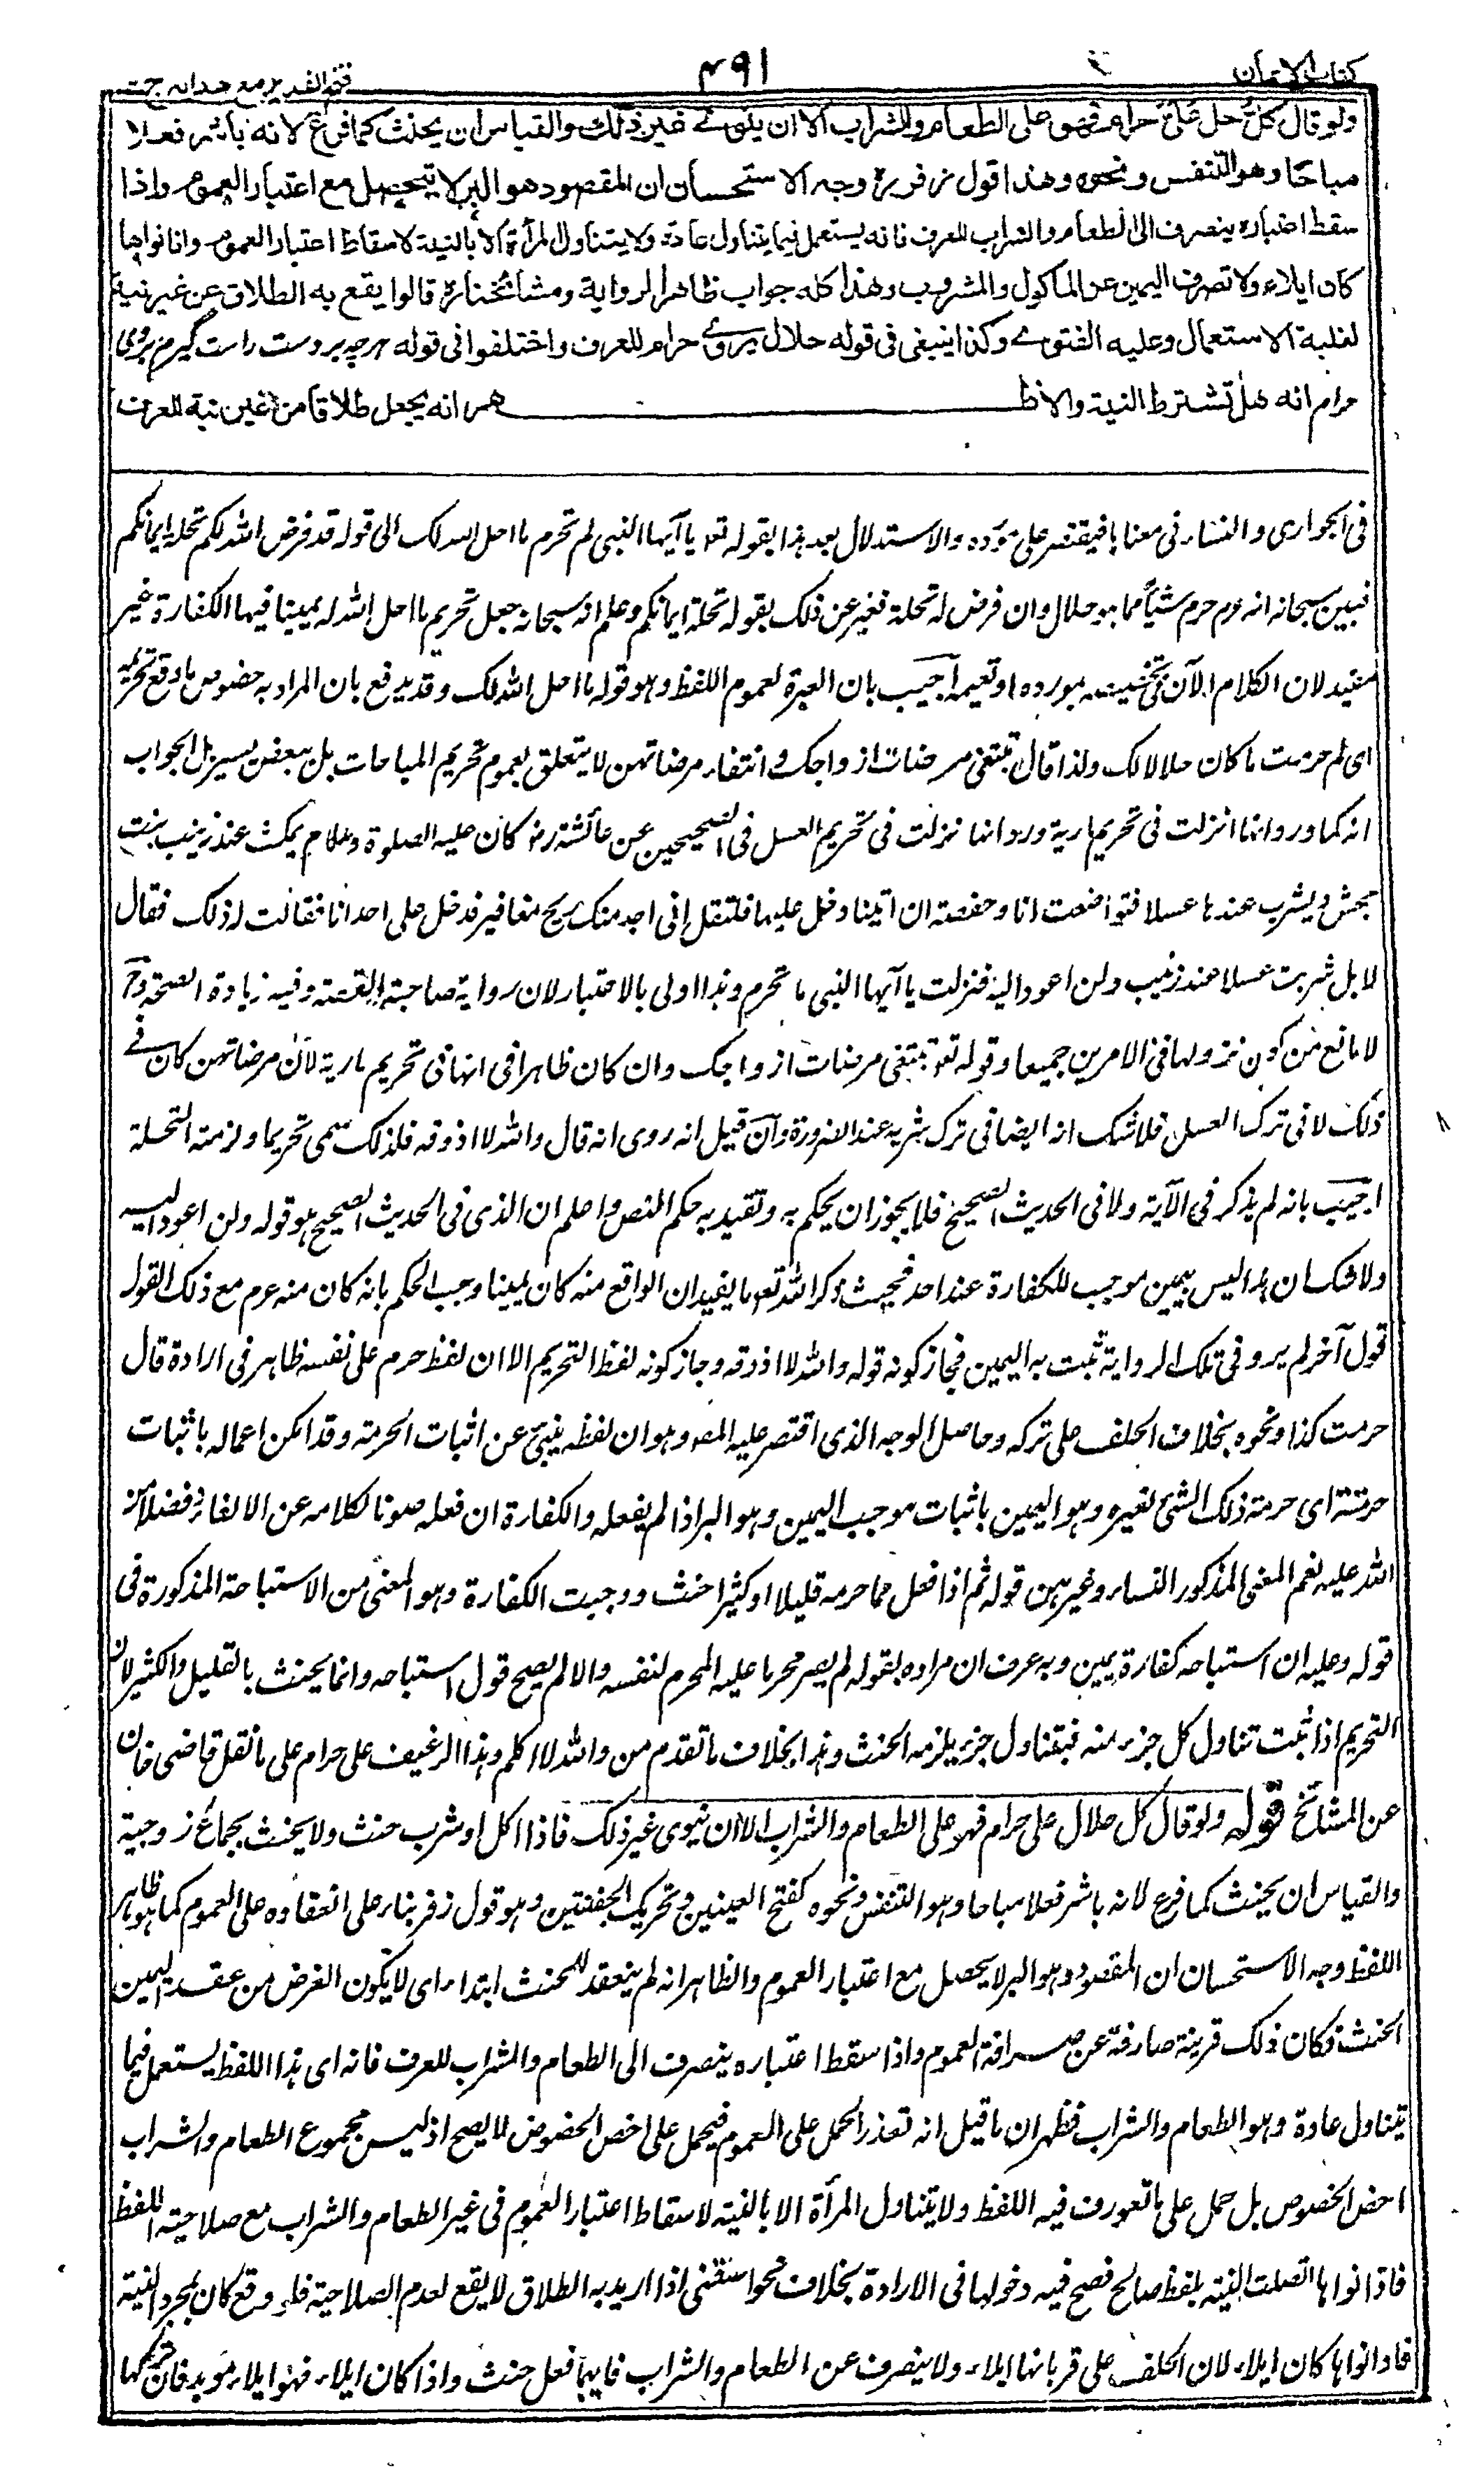 كتاب الايمان
٤٩١
فتح القدير مع هدايه ج ٢
ولو قال كل حل على حرام فهو على الطعام والشراب الا ان ينوى غير ذلك والقياس ان يحنث كما فرغ لانه باشر فعلا
مباحا وهو التنفس ونحوه وهذا قول زفر وجه الاستحسان ان المقصود هو البر لا يتحصل مع اعتبار العموم واذا
سقط اعتباره ينصرف الى الطعام والشراب للعرف فانه يستعمل فيما يتناول عادة ولا يتناول المرأة الا بالنية لاسقاط اعتبار العموم واذا نواها
كان ايلاء ولا تصرف اليمين عن الماكول والمشروب وهذا كله جواب ظاهر الرواية ومشائخنا قالوا يقع به الطلاق عن غير نية
لغلبة الاستعمال وعليه الفتوى وكذا ينبغى فى قوله حلال بروى حرام للعرف واختلفوا فى قوله هرچه بر دست راست گيرم بروى
حرام انه هل تشترط النية والاظ هر انه يجعل طلاقا من غير نية للعرف
فى الجوارى والنساء فى معناها فيقتصر على مورده والاستدلال بعد هذا بقوله تعہ يا ايها النبى لم تحرم ما احل الله لك الى قوله قد فرض الله لكم تحلة ايمانكم
فبين سبحانه انه عم حرم شيئا مما هو حلال وان فرض له تحلة فعبر عن ذلك بقوله تحلة ايمانكم وعلم انه سبحانه جعل تحريم ما احل الله له يمينا فيها الكفارة غير
مفيد لان الكلام الآن فى تخصيصه بمورده او تعيمه اجيب بان العبرة لعموم اللفظ وهو قوله ما احل الله لك وقد يدفع بان المراد به خصوص ما وقع تحريمه
اى لم حرمت ما كان حلالا لك ولذا قال تبتغى مرضات ازواجك وانتفاء مرضاتهن لا يتعلق بعموم تحريم المباحات بل ببعض يسير بل الجواب
انه كما ورد انها انزلت فى تحريم مارية ورد انها نزلت فى تحريم العسل فى الصحيحين عن عائشة رضہ كان عليه الصلوة وسلام يمكث عند زينب بنت
جحش ويشرب عندها عسلا فتواضعت انا وحفصة ان اتينا دخل عليها فلتقل انى اجد منك ريح مغافير فدخل على احدانا فقالت له ذلك فقال
لا بل شربت عسلا عند زينب ولن اعود اليه فنزلت يا ايها النبى ما تحرم وهذا اولى بالاعتبار لان رواية صاحبة القصة وفيه زيادة الصحة وح
لا مانع من كون نزولها فى الامرين جميعا وقوله تعہ تبتغى مرضات ازواجك وان كان ظاهرا فى انها فى تحريم مارية لان مرضاتهن كان فى
ذلك لا فى ترك العسل فلا شك انه ايضا فى ترك شربه عند الضرورة وان قيل انه روى انه قال والله لا اذوقه فلذلك سمى تحريما ولزمته التحلة
اجيب بانه لم يذكر فى الآية ولا فى الحديث الصحيح فلا يجوز ان يحكم به وتقيد به حكم النص واعلم ان الذى فى الحديث الصحيح هو قوله ولن اعود اليه
ولا شك ان هذا ليس بيمين موجب للكفارة عند احد فحيث ذكر الله تعہ ما يفيد ان الواقع منه كان يمينا وجب الحكم بانه كان منه عم مع ذلك القول
قول آخر لم يرو فى تلك الرواية تثبت به اليمين فجاز كونه قوله والله لا اذوقه وجاز كونه لفظ التحريم الا ان لفظ حرم على نفسه ظاهر فى ارادة قال
حرمت كذا ونحوه بخلاف الحلف على تركه وحاصل الوجه الذى اقتصر عليه المصہ وهو ان لفظه ينبئ عن اثبات الحرمة وقد امكن اعماله باثبات
حرمته اى حرمة ذلك الشئ لغيره وهو اليمين باثبات موجب اليمين وهو البر اذا لم يفعله والكفارة ان فعله صونا لكلامه عن الالغاء فضلا من
الله عليه نعم المعنى المذكور النساء وغيرهن قوله ثم اذا فعل مما حرمه قليلا او كثيرا حنث ووجبت الكفارة وهو المعنى من الاستباحة المذكورة فى
قوله وعليه ان استباحه كفارة يمين وبه عرف ان مراده بقوله لم يصر محرما عليه المحرم لنفسه والا لم يصح قول استباحه وانما يحنث بالقليل والكثير لان
التحريم اذا ثبت تناول كل جزء منه فبتناول جزء يلزمه الحنث وهذا بخلاف ما تقدم من والله لا اكلم وهذا الرغيف على حرام على ما نقل قاضى خان
عن المشائخ قوله ولو قال كل حلال على حرام فهو على الطعام والشراب الا ان ينوى غير ذلك فاذا اكل او شرب حنث ولا يحنث بجماع زوجية
والقياس ان يحنث كما فرغ لانه باشر فعلا مباحا وهو التنفس ونحوه كفتح العينين وتحريك الجفنين وهو قول زفر بناء على انعقاده على العموم كما هو ظاهر
اللفظ وجه الاستحسان ان المقصود وهو البر لا يحصل مع اعتبار العموم والظاهر انه لم ينعقد للحنث ابتداء اى لا يكون الغرض من عقد اليمين
الحنث فكان ذلك قرينة صارفة عن صرافة العموم واذا سقط اعتباره ينصرف الى الطعام والشراب للعرف فانه اى هذا اللفظ يستعمل فيما
يتناول عادة وهو الطعام والشراب فظهر ان ما قيل انه تعذر الحمل على العموم فيحمل على اخص الخصوص لا يصح اذ ليس مجموع الطعام والشراب
اخص الخصوص بل حمل على ما تعورف فيه اللفظ ولا يتناول المرأة الا بالنية لاسقاط اعتبار العموم فى غير الطعام والشراب مع صلاحية اللفظ
فاذا نواها اتصلت النية بلفظ صالح فصح فيه دخولها فى الارادة بخلاف نحو اسقنى اذا اريد به الطلاق لا يقع لعدم الصلاحية فلو وقع كان بمجرد النية
فاذا نواها كان ايلاء لان الحلف على قربانها ايلاء ولا ينصرف عن الطعام والشراب فايهما فعل حنث واذا كان ايلاء فهو ايلاء مؤبد فان تركها